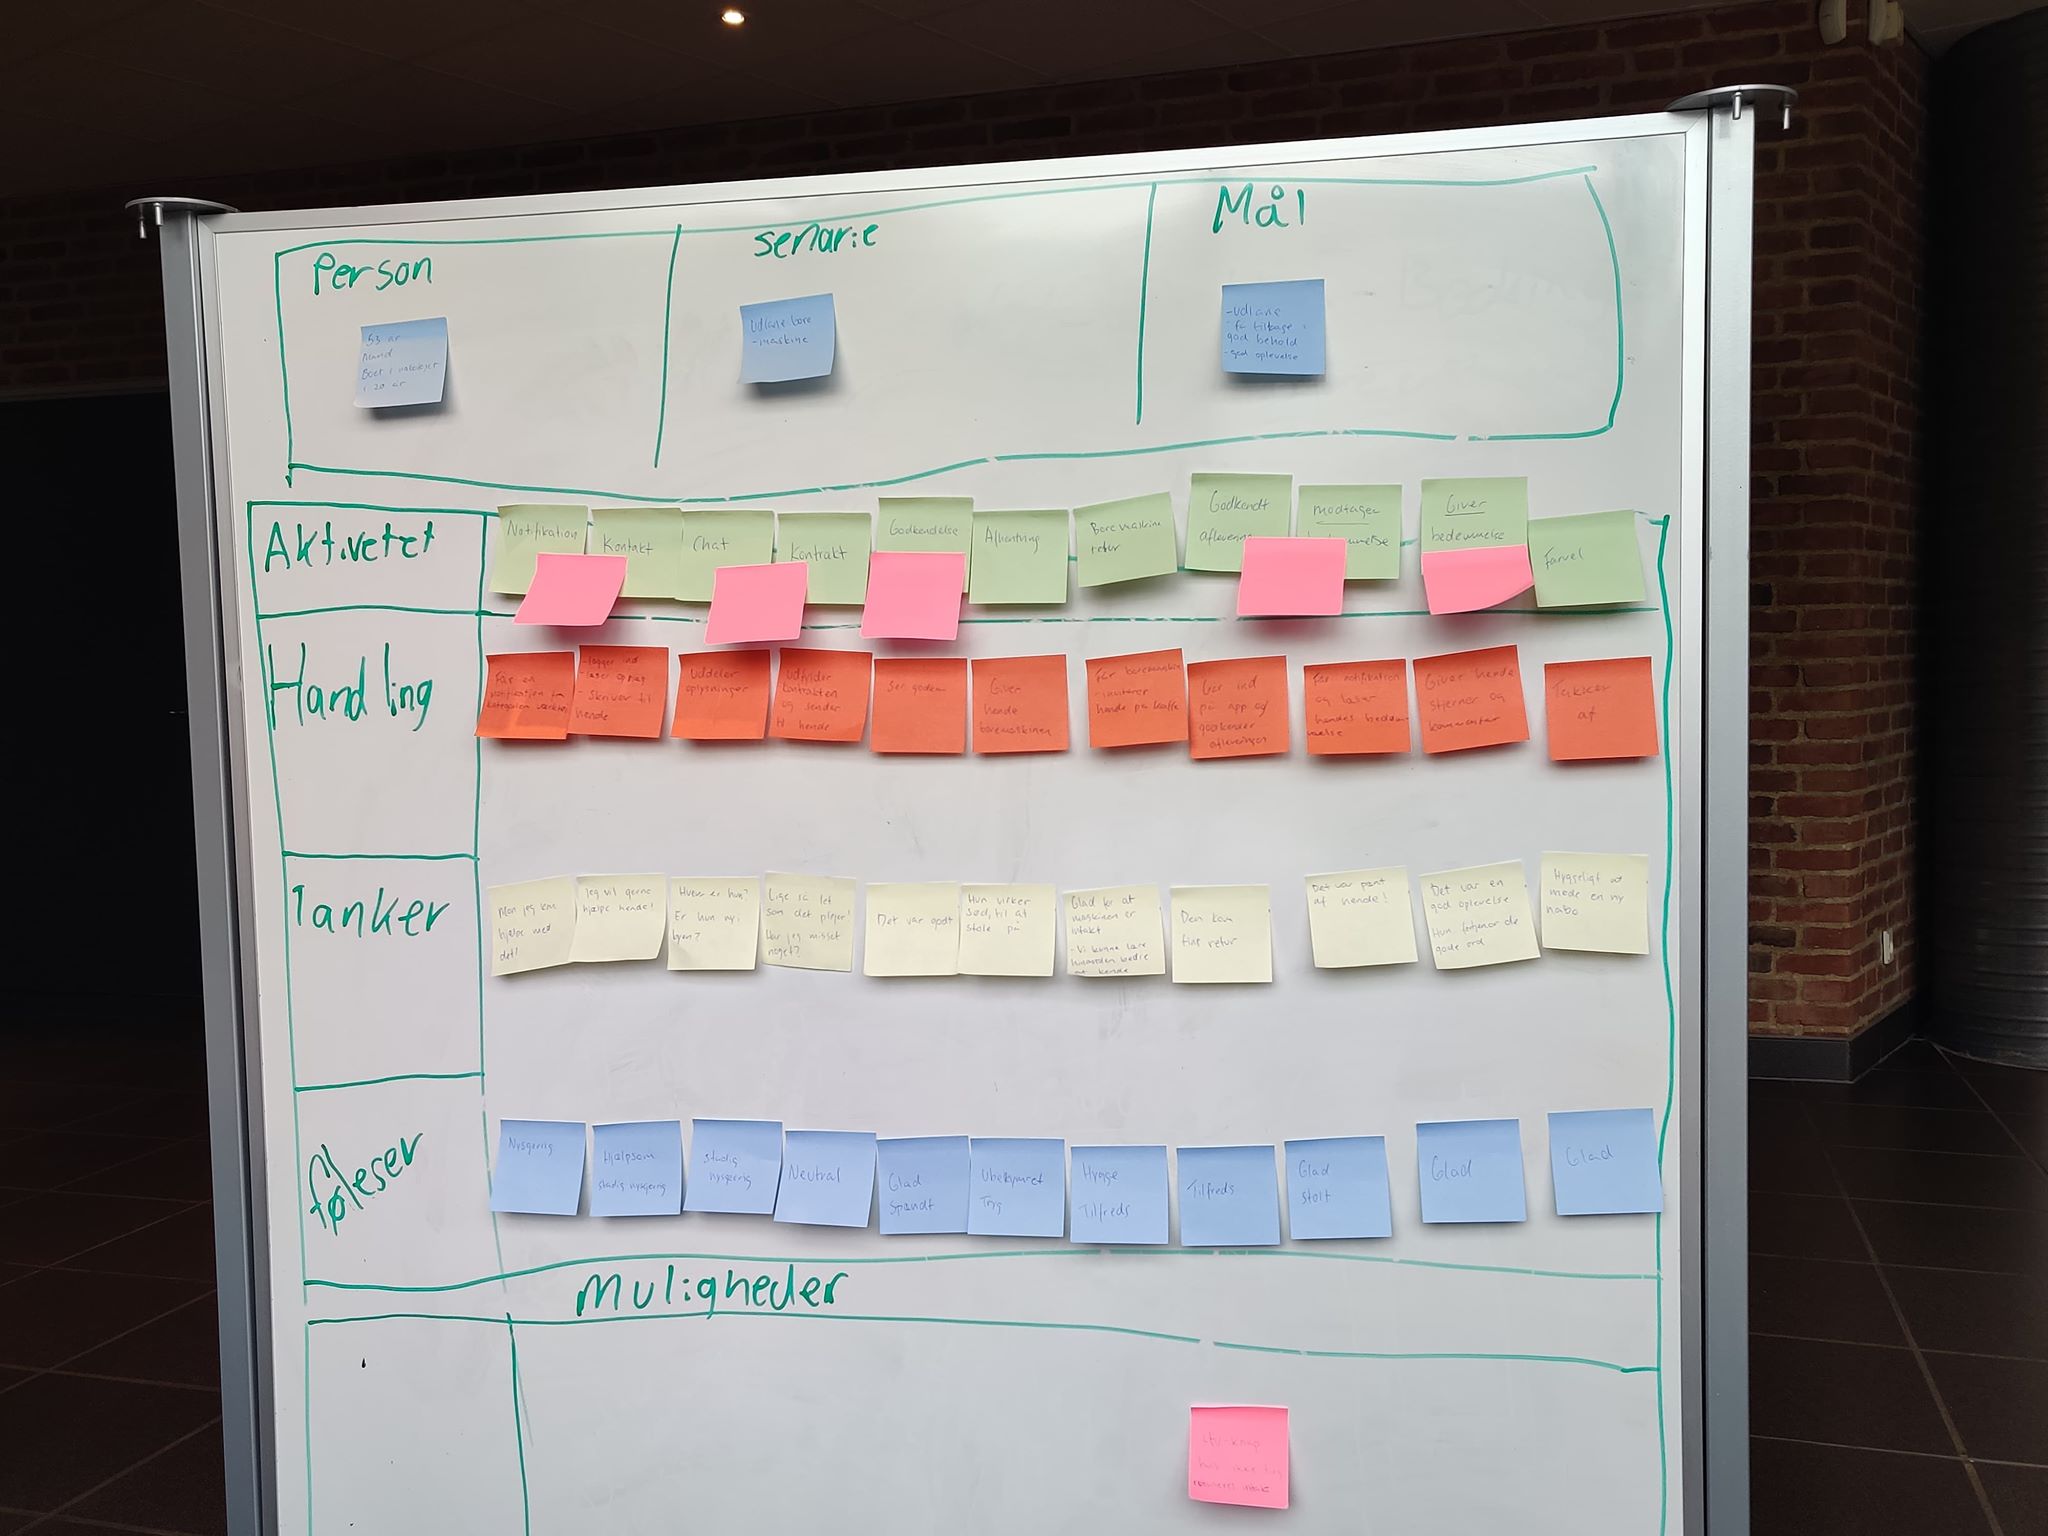 Person
senarie
Mål
53 år
Mand
Boet i
i 20 år
Udlane bore
-maskine
-udlane
-få tilbage i
god behold
-god oplevelse
Aktivetet
Notifikation
Kontakt
Chat
Kontrakt
Godkendelse
Afhentning
Boremaskine
retur
Godkendt
aflevering
modtager
Giver
bedømmelse
Farvel
Handling
Får en
notifikation fra
kategorien værktøj
-logger ind
-læser opslag
-skriver til
hende
Uddeler
oplysninger
Udfylder
kontrakten
og sender
til hende
Giver
hende
boremaskinen
Får boremaskin
-inviterer
hende på kaffe
Går ind
på app og
godkender
afleveringen
Får notifikation
og læser
hendes bedøm-
melse
Giver hende
stjerner og
kommentar
Takker
af
Tanker
Mon jeg kan
hjælpe med
det!
Jeg vil gerne
hjælpe hende!
Hvem er hun?
Er hun ny i
byen?
Lige så let
som det plejer!
Har jeg misset
noget?
Det var godt
Hun virker
sød, til at
stole på
Glad for at
maskinen er
intakt
-Vi kunne lære
hinanden bedre
at kende
Den kom
fint retur
Det var pænt
af hende!
Det var en
god oplevelse
Hun fortjener de
gode ord
Hyggeligt at
møde en ny
nabo
føleser
Nysgerrig
Hjælpsom
stadig nysgerrig
stadig
nysgerrig
Neutral
Glad
Spændt
Ubekymret
Tryg
Hygge
Tilfreds
Tilfreds
Glad
stolt
Glad
Glad
Muligheder